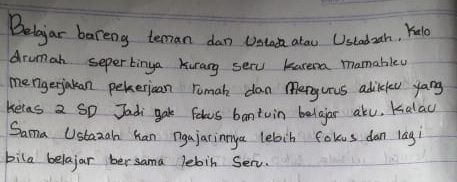 Belajar bareng teman dan Ustadz atau Ustadzah. Kalo
dirumah sepertinya kurang seru karena mamahku
mengerjakan pekerjaan rumah dan Mengurus adikku yang
kelas 2 SD Jadi gak fokus bantuin belajar aku. Kalau
Sama Ustazah kan ngajarinnya lebih fokus dan lagi
bila belajar bersama lebih Seru.